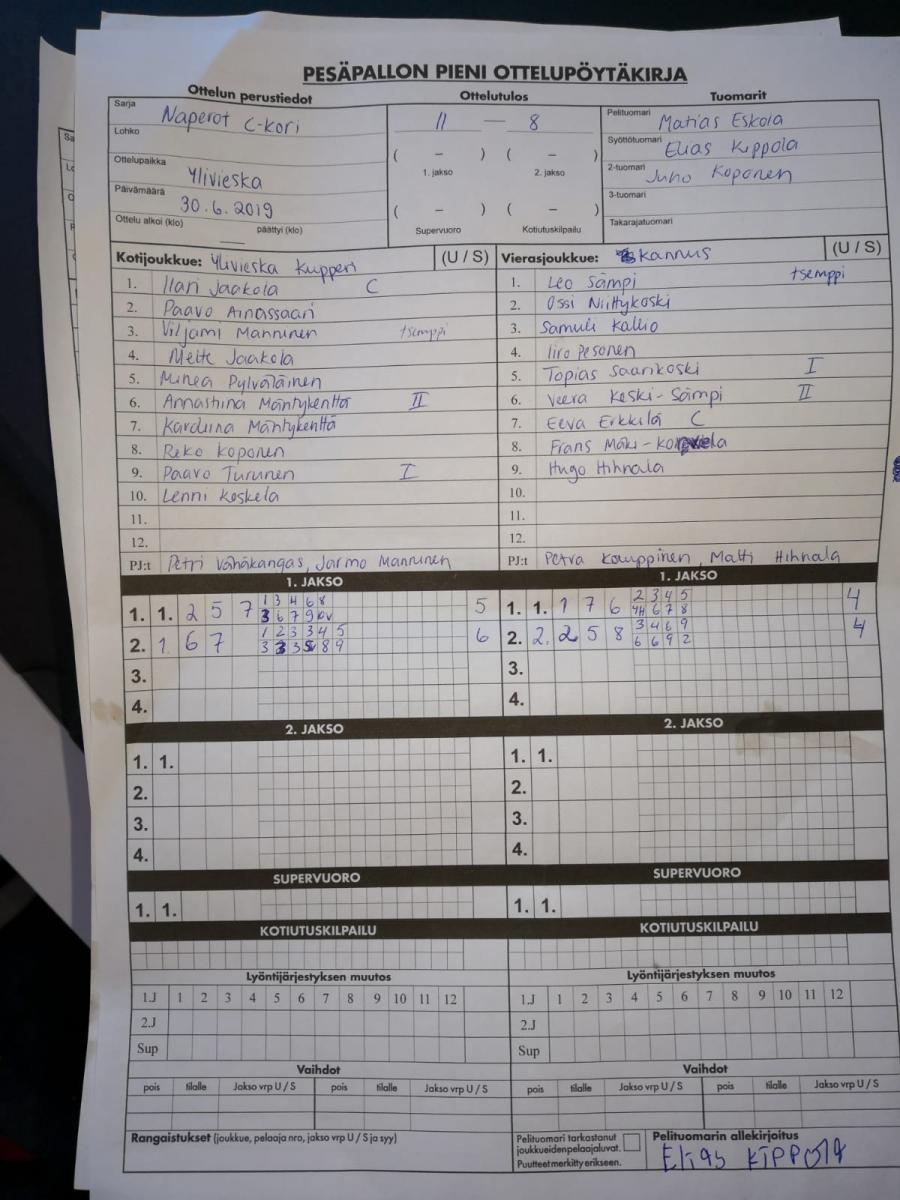 PESÄPALLON PIENI OTTELUPÖYTÄKIRJA
Ottelun perustiedot
Ottelutulos
Tuomarit
Sarja Naperot C-kori
Lohko
Ottelupaikka Ylivieska
Päivämäärä 30.6.2019
Ottelu alkoi (klo) — päättyi (klo)
11 — 8
( – ) ( – )
1. jakso 2. jakso
( – ) ( – )
Supervuoro Kotiutuskilpailu
Pelituomari Matias Eskola
Syöttötuomari Elias Kippola
2-tuomari Juho Koponen
3-tuomari
Takarajatuomari
Kotijoukkue: Ylivieska Kupperi (U / S)
1. Ilari Jaakola C
2. Paavo Ainassaari
3. Viljami Manninen tsemppi
4. Mette Jaakola
5. Minea Pylväläinen
6. Annastiina Mäntykenttä II
7. Karoliina Mäntykenttä
8. Reko Koponen
9. Paavo Turunen I
10. Lenni Koskela
11.
12.
PJ:t Petri Vähäkangas, Jarmo Manninen
Vierasjoukkue: Kannus (U / S)
1. Leo Sämpi tsemppi
2. Ossi Niittykoski
3. Samuli Kallio
4. Iiro Pesonen
5. Topias Saarikoski I
6. Veera Keski-Sämpi II
7. Eeva Erkkilä C
8. Frans Mäki-
9. Hugo Hihnala
10.
11.
12.
PJ:t Petra Kamppinen, Matti Hihnala
1. JAKSO
1. 1. 2 5 7 1 3 4 6 8 5
3 6 7 9
2. 1. 6 7 1 2 3 3 4 5 6
3 3 3 5 8 9
3.
4.
1. JAKSO
1. 1. 1 7 6 2 3 4 5 4
4 6 7 8
2. 2. 2 5 8 3 4 6 9 4
6 6 9 2
3.
4.
2. JAKSO
1. 1.
2.
3.
4.
2. JAKSO
1. 1.
2.
3.
4.
SUPERVUORO
1. 1.
SUPERVUORO
1. 1.
KOTIUTUSKILPAILU
KOTIUTUSKILPAILU
Lyöntijärjestyksen muutos
1.J 1 2 3 4 5 6 7 8 9 10 11 12
2.J
Sup
Lyöntijärjestyksen muutos
1.J 1 2 3 4 5 6 7 8 9 10 11 12
2.J
Sup
Vaihdot
pois tilalle Jakso vrp U / S pois tilalle Jakso vrp U / S
Vaihdot
pois tilalle Jakso vrp U / S pois tilalle Jakso vrp U / S
Rangaistukset (joukkue, pelaaja nro, jakso vrp U / S ja syy)
Pelituomari tarkastanut
joukkueidenpelaajaluvat.
Puutteet merkitty erikseen.
Pelituomarin allekirjoitus
Elias Kippola